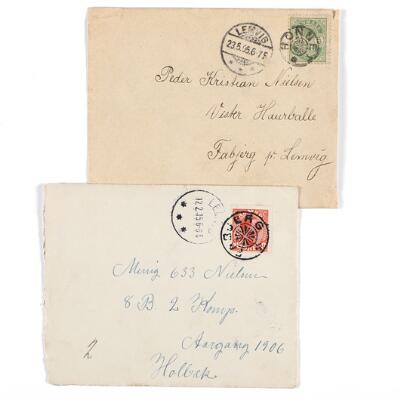 LEMVIG
23.5.05.6-7 E
HONNE
Peder Kristian Nielsen
Vester Haurballe
Fabjerg pr Lemvig
FABJERG
Menig 633 Nielsen
8 B. 2 Komp.
Aargang 1906
2
Holbæk